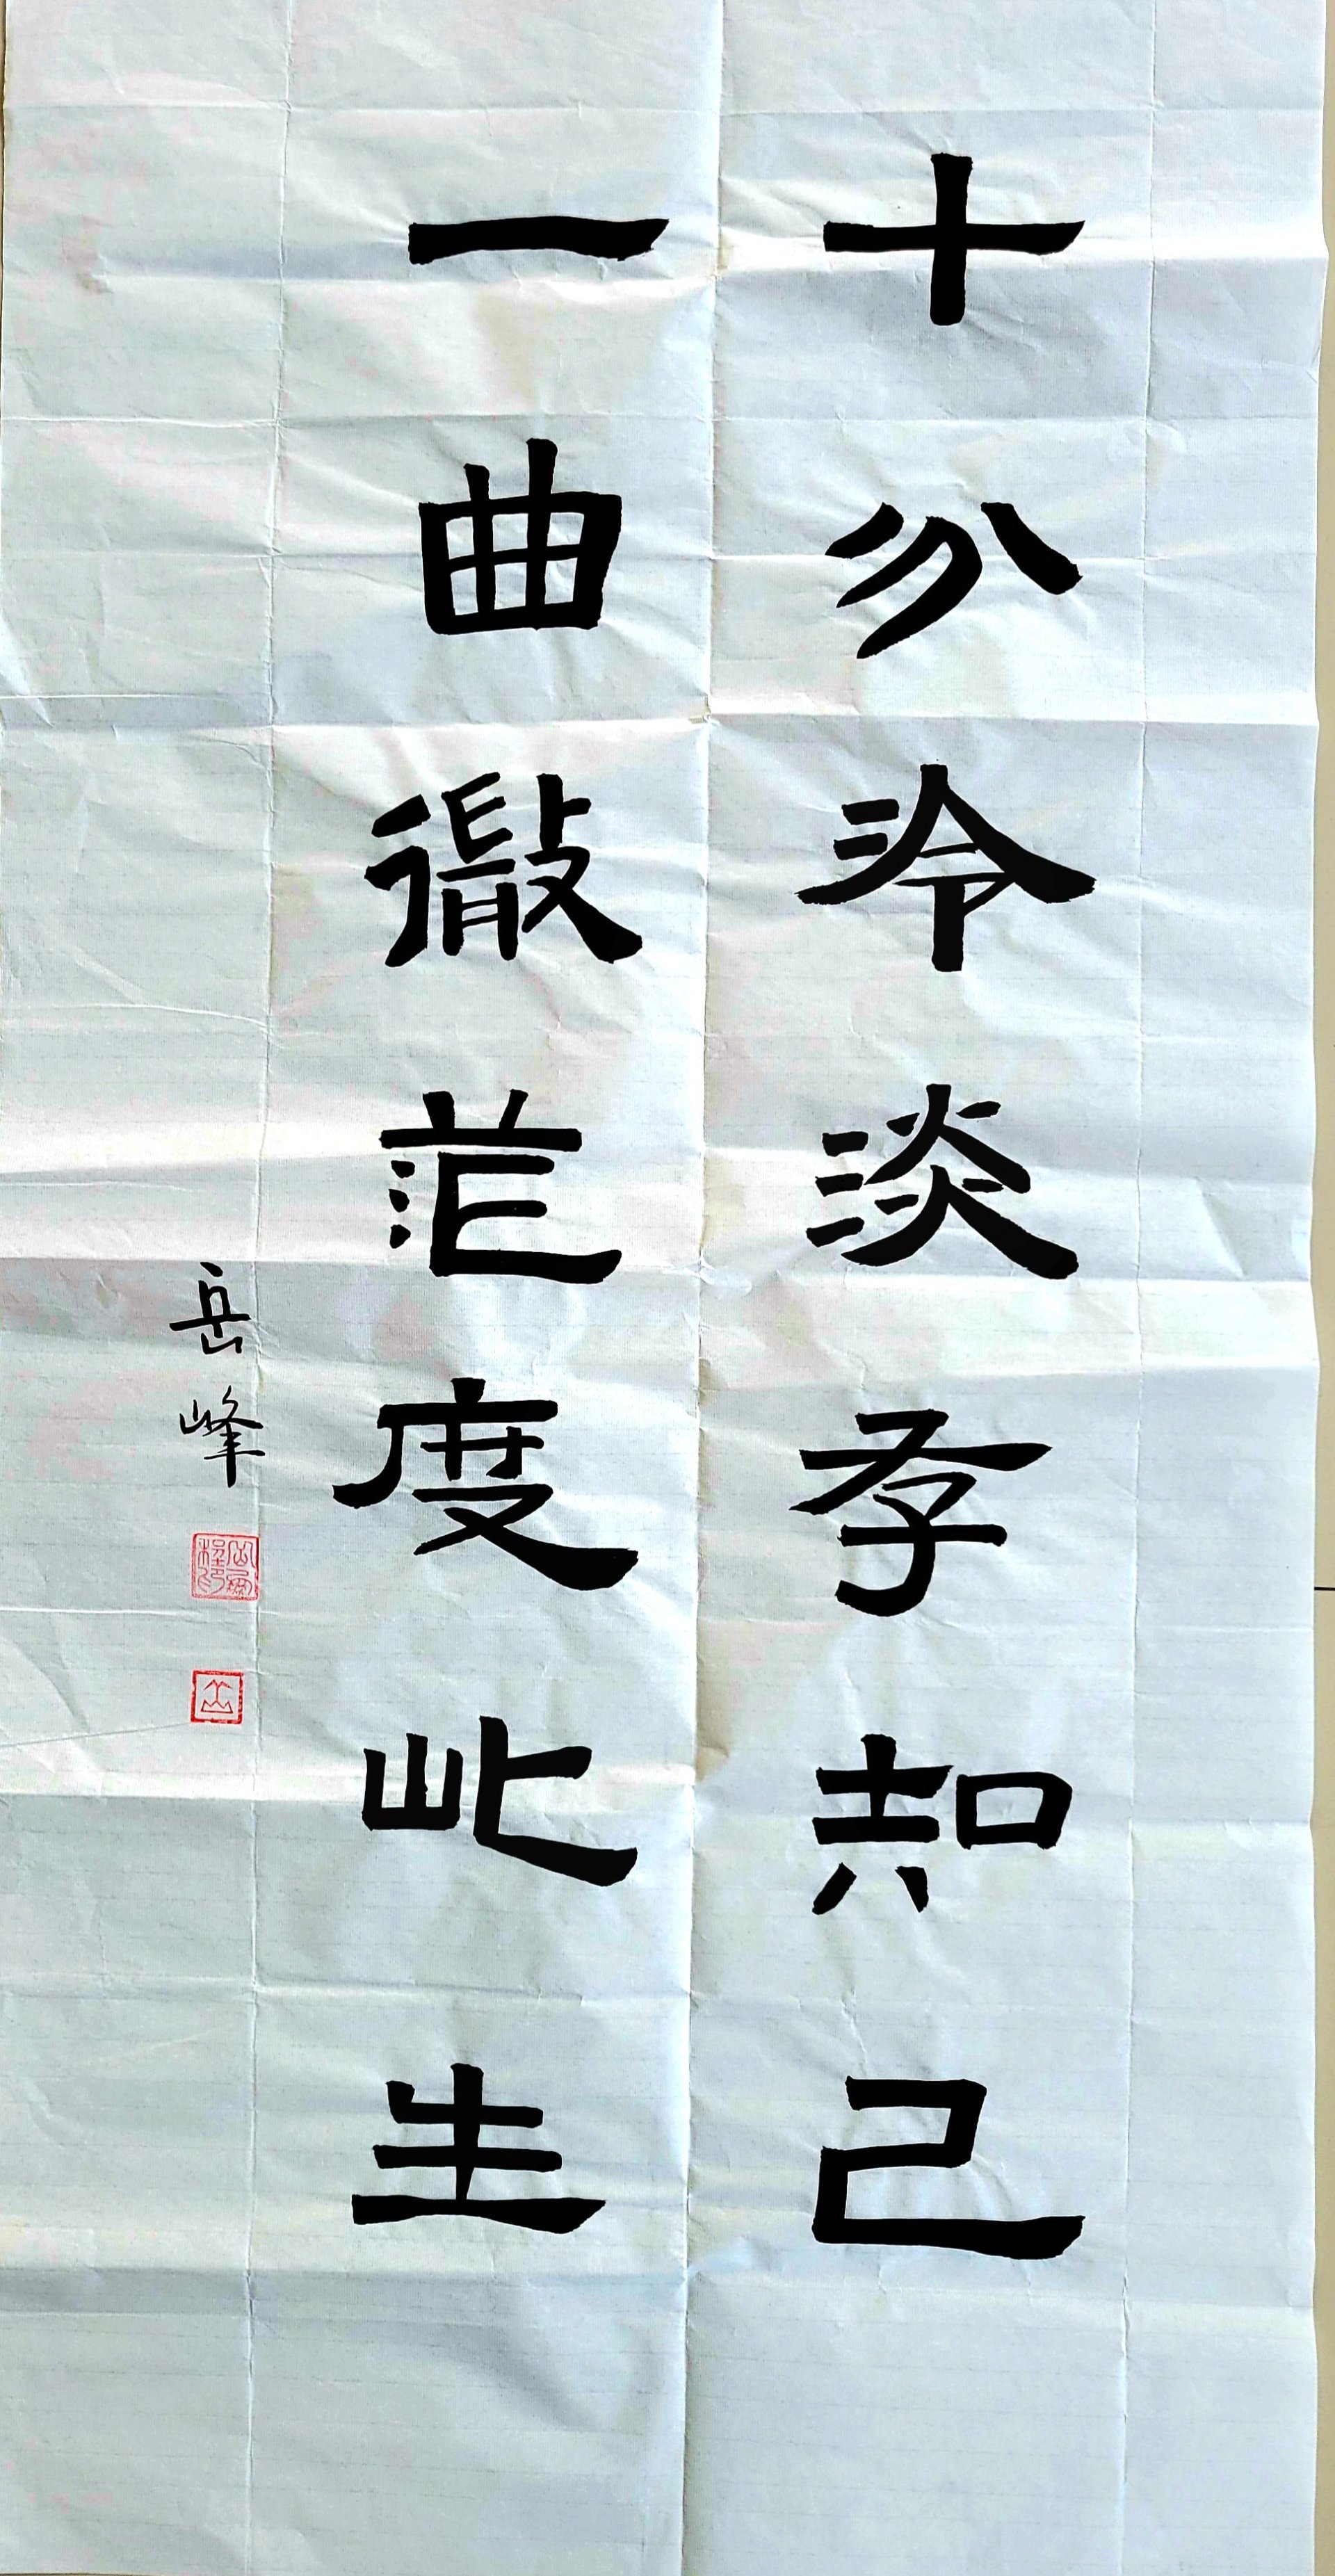 十分冷淡存知己
一曲微茫度此生
岳峰